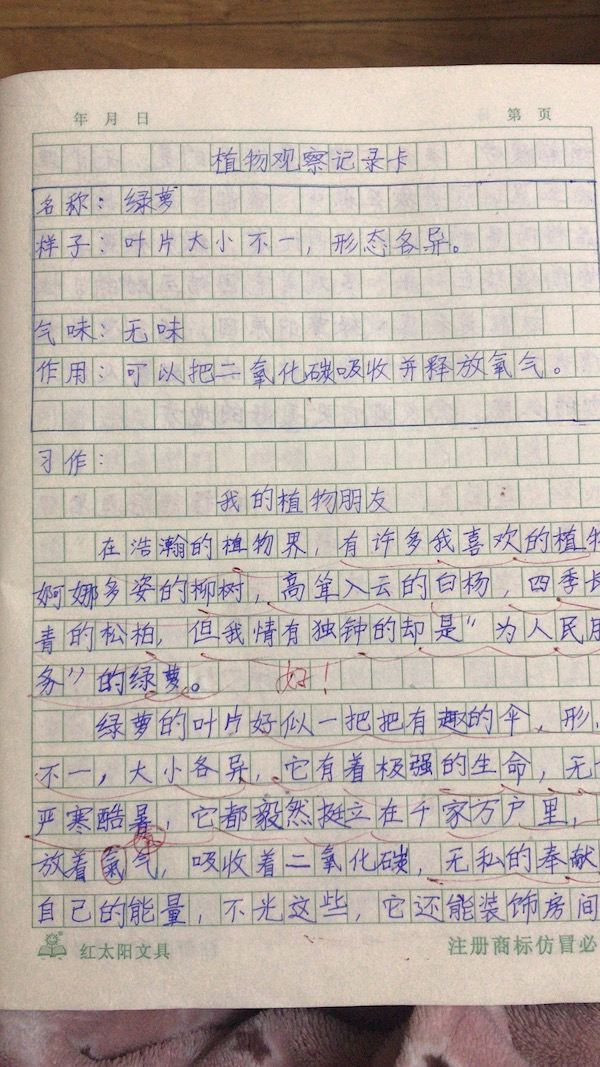 年 月 日 第 页
植物观察记录卡
名称：绿萝
样子：叶片大小不一，形态各异。
气味：无味
作用：可以把二氧化碳吸收并释放氧气。
习作：
我的植物朋友
在浩瀚的植物界，有许多我喜欢的植物
婀娜多姿的柳树，高耸入云的白杨，四季长
青的松柏，但我情有独钟的却是“为人民服
务”的绿萝。 好！
绿萝的叶片好似一把把有趣的伞，形
不一，大小各异，它有着极强的生命，无
严寒酷暑，它都毅然挺立在千家万户里，
放着氧气，吸收着二氧化碳，无私的奉献
自己的能量，不光这些，它还能装饰房间
红太阳文具 注册商标仿冒必